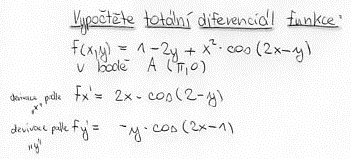 Vypočtěte totální diferenciál funkce:
f(x,y) = 1-2y + x²·cos(2x-y)
v bodě A (π,0)
derivace podle "x" fx' = 2x·cos(2-y)
derivace podle "y" fy' = -y·cos(2x-1)